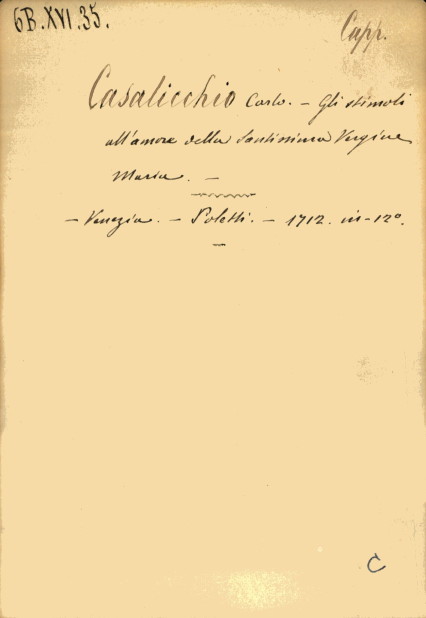 6B.XVI.35.
Capp.
Casalicchio Carlo. – Gli stimoli
all'amore della Santissima Vergine
Maria. –
– Venezia. – Poletti. – 1712. in-12º.
C